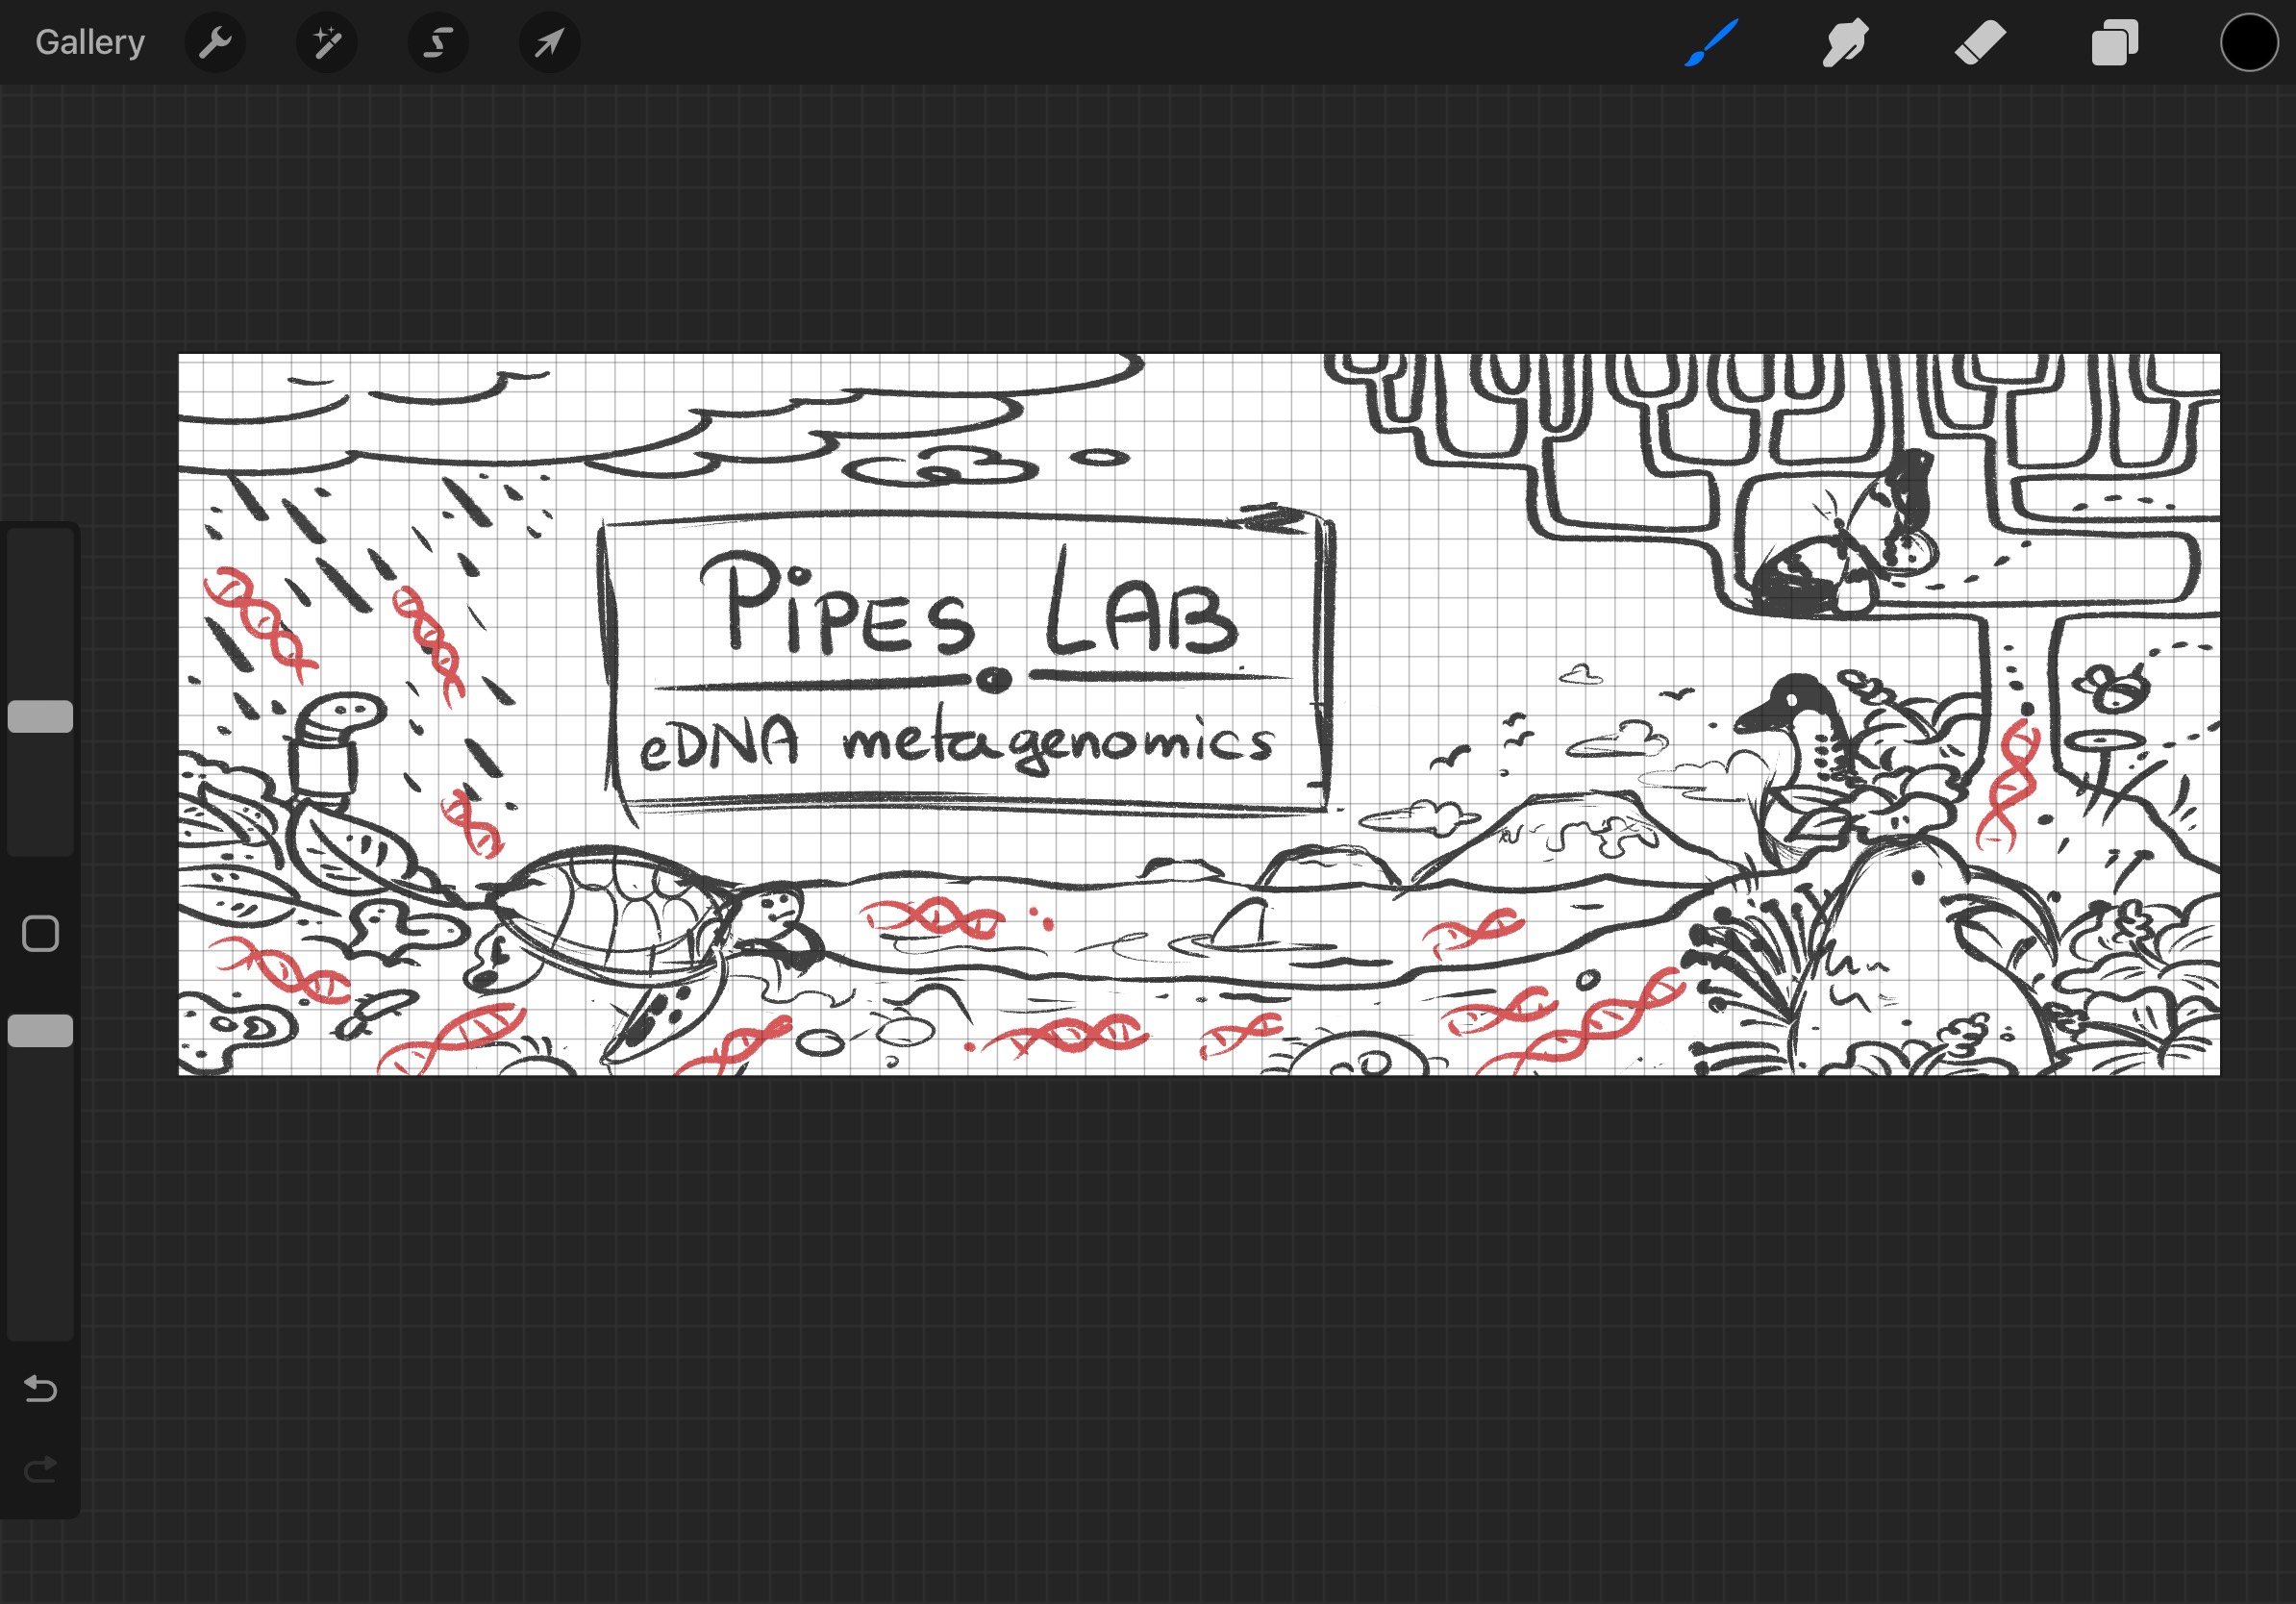 Gallery
PiPES LAB
eDNA metagenomics